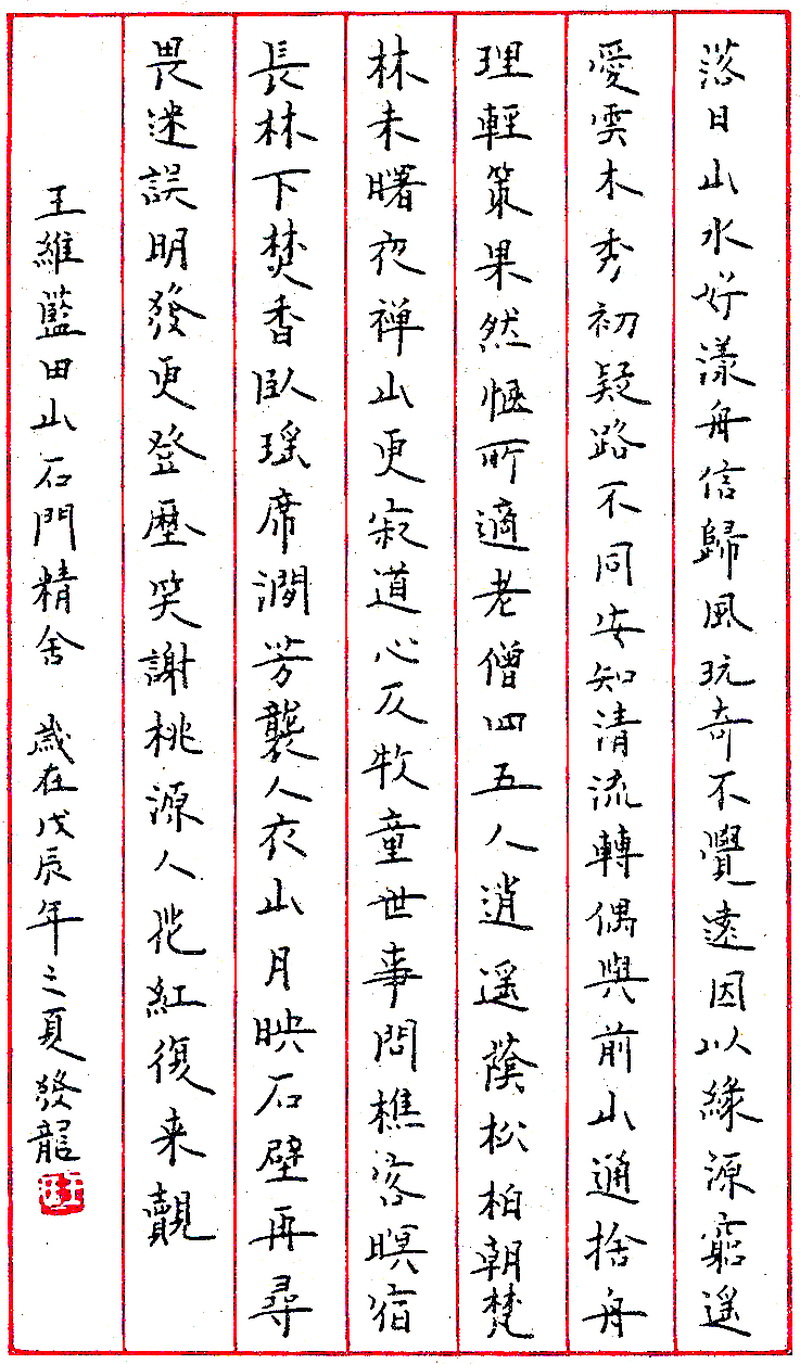 落日山水好漾舟信歸風玩奇不覺遠因以緣源窮遥
愛雲木秀初疑路不同安知清流轉偶與前山通捨舟
理輕策果然愜所適老僧四五人逍遥蔭松柏朝梵
林未曙夜禅山更寂道心及牧童世事問樵客暝宿
長林下焚香臥瑶席澗芳襲人衣山月映石壁再尋
畏迷誤明發更登歷笑謝桃源人花紅復来覿
王維藍田山石門精舍 歲在戊辰年之夏發龍